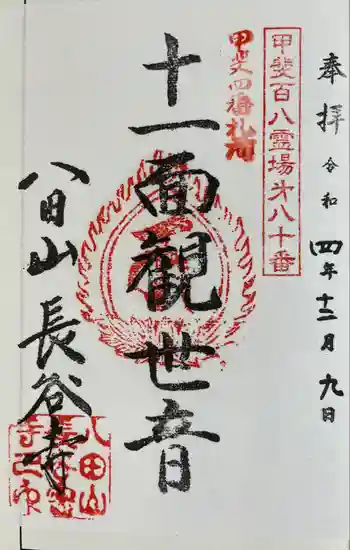 奉拝 令和四年十二月九日
甲斐百八霊場才八十番
甲斐四番札所
十一面観世音
八田山 長谷寺
八田山
長谷密
寺之印